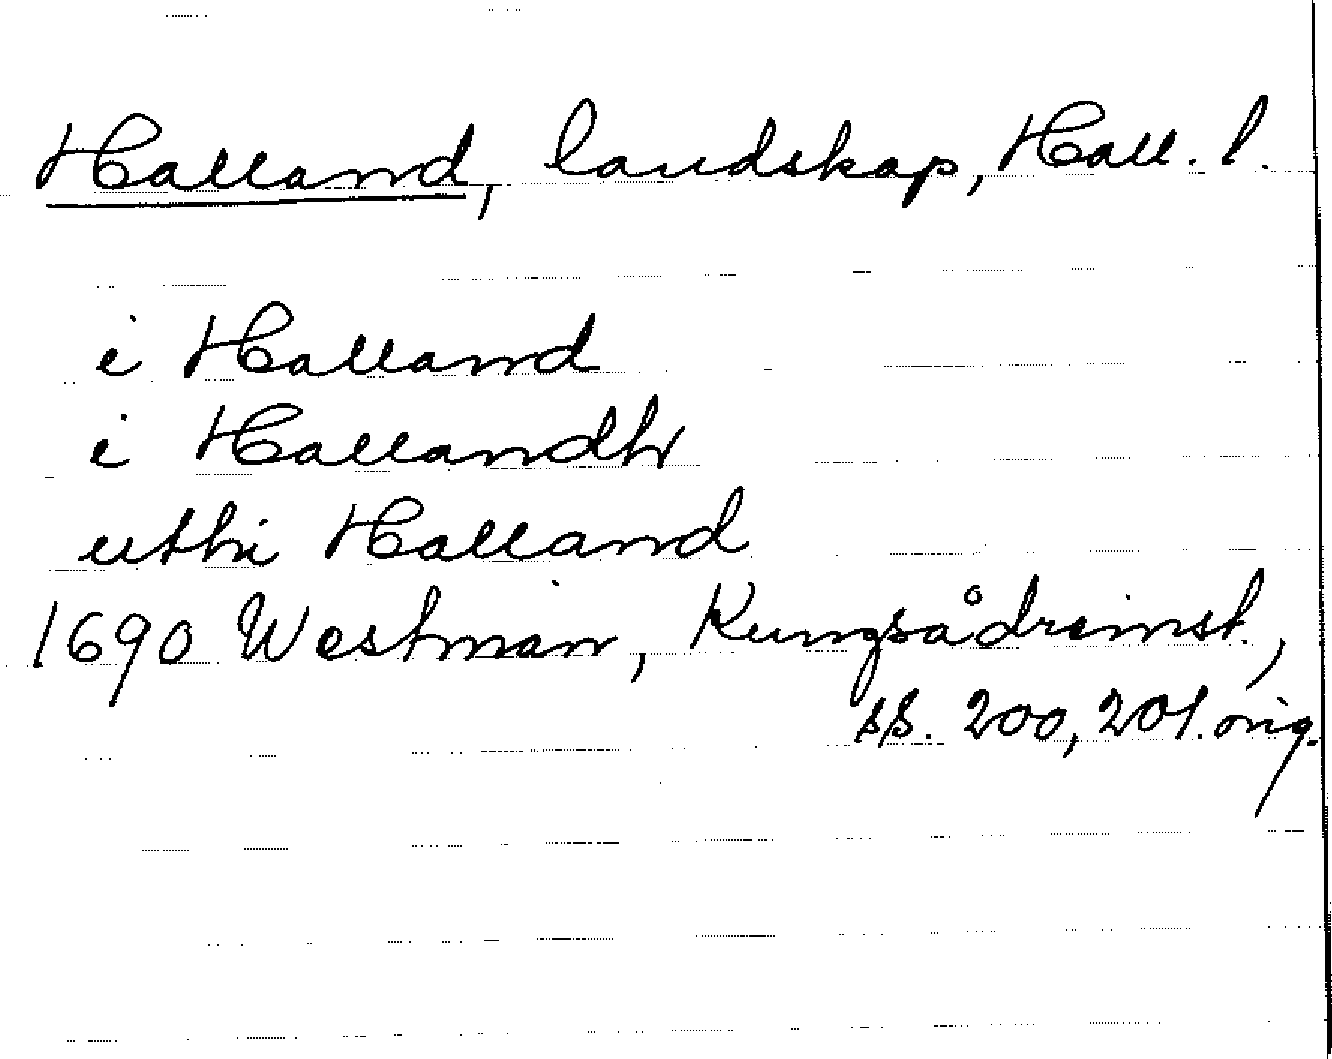 Halland, landskap, Hall. l.
i Halland
i Hallandh
uthi Halland
1690 Westman, Kungsådreinst.,
ss. 200, 201. orig.